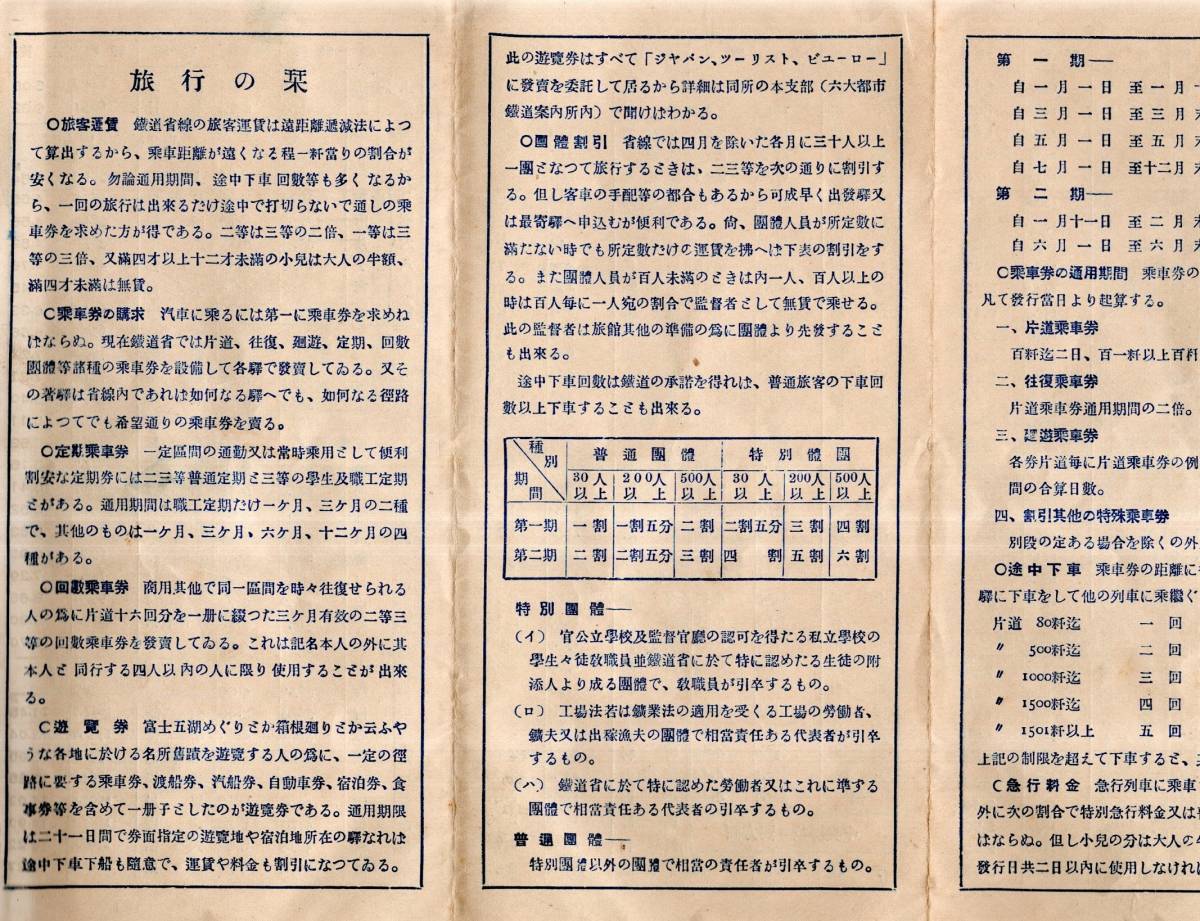 旅行の栞
○旅客運賃　鐵道省線の旅客運賃は遠距離遞減法によつ
て算出するから、乘車距離が遠くなる程一粁當りの割合が
安くなる。勿論通用期間、途中下車回數等も多くなるか
ら、一回の旅行は出來るだけ途中で打切らないで通しの乘
車券を求めた方が得である。二等は三等の二倍、一等は三
等の三倍、又滿四才以上十二才未滿の小兒は大人の半額、
滿四才未滿は無賃。
○乘車券の購求　汽車に乘るには第一に乘車券を求めね
ばならぬ。現在鐵道省では片道、往復、廻遊、定期、回數
團體等諸種の乘車券を設備して各驛で發賣してゐる。又そ
の著驛は省線內であれは如何なる驛へでも、如何なる徑路
によつてでも希望通りの乘車券を賣る。
○定期乘車券　一定區間の通勤又は常時乘用として便利
割安な定期券には二三等普通定期と三等の學生及職工定期
とがある。通用期間は職工定期だけ一ケ月、三ケ月の二種
で、其他のものは一ケ月、三ケ月、六ケ月、十二ケ月の四
種がある。
○回數乘車券　商用其他で同一區間を時々往復せられる
人の爲に片道十六回分を一册に綴つた三ケ月有效の二等三
等の回數乘車券を發賣してゐる。これは記名本人の外に其
本人と同行する四人以內の人に限り使用することが出來
る。
○遊覽券　富士五湖めぐりとか箱根廻りとか云ふや
うな各地に於ける名所舊蹟を遊覽する人の爲に、一定の徑
路に要する乘車券、渡船券、汽船券、自動車券、宿泊券、食
事券等を含めて一册子としたのが遊覽券である。通用期限
は二十一日間で券面指定の遊覽地や宿泊地所在の驛なれは
途中下車下船も隨意で、運賃や料金も割引になつてゐる。
此の遊覽券はすべて「ジヤパン、ツーリスト、ビユーロー」
に發賣を委託して居るから詳細は同所の本支部（六大都市
鐵道案內所內）で聞けはわかる。
○團體割引　省線では四月を除いた各月に三十人以上
一團となつて旅行するときは、二三等を次の通りに割引す
る。但し客車の手配等の都合もあるから可成早く出發驛又
は最寄驛へ申込むが便利である。尙、團體人員が所定數に
滿たない時でも所定數だけの運賃を拂へは下表の割引をす
る。また團體人員が百人未滿のときは內一人、百人以上の
時は百人每に一人宛の割合で監督者として無賃で乘せる。
此の監督者は旅館其他の準備の爲に團體より先發すること
も出來る。
途中下車回數は鐵道の承諾を得れは、普通旅客の下車回
數以上下車することも出來る。
種別　期間　普通團體　特別團體
30人以上　200人以上　500人以上　30人以上　200人以上　500人以上
第一期　一割　一割五分　二割　二割五分　三割　四割
第二期　二割　二割五分　三割　四割　五割　六割
特別團體―
（イ）官公立學校及監督官廳の認可を得たる私立學校の
學生々徒敎職員並鐵道省に於て特に認めたる生徒の附
添人より成る團體で、敎職員が引卒するもの。
（ロ）工場法若は鑛業法の適用を受くる工場の勞働者、
鑛夫又は出稼漁夫の團體で相當責任ある代表者が引卒
するもの。
（ハ）鐵道省に於て特に認めた勞働者又はこれに準ずる
團體で相當責任ある代表者の引卒するもの。
普通團體―
特別團體以外の團體で相當の責任者が引卒するもの。
第一期―
自一月一日　至一月十
自三月一日　至三月末
自五月一日　至五月末
自七月一日　至十二月末
第二期―
自一月十一日　至二月末
自六月一日　至六月末
○乘車券の通用期間　乘車券の
凡て發行當日より起算する。
一、片道乘車券
百粁迄二日、百一粁以上百粁
二、往復乘車券
片道乘車券通用期間の二倍。
三、廻遊乘車券
各券片道每に片道乘車券の例
間の合算日數。
四、割引其他の特殊乘車券
別段の定ある場合を除くの外
○途中下車　乘車券の距離に
驛に下車をして他の列車に乘繼ぐ
片道　80粁迄　一回
〃　500粁迄　二回
〃　1000粁迄　三回
〃　1500粁迄　四回
〃　1501粁以上　五回
上記の制限を超えて下車すると、
○急行料金　急行列車に乘車
外に次の割合で特別急行料金又は
はならぬ。但し小兒の分は大人の
發行日共二日以內に使用しなけれ